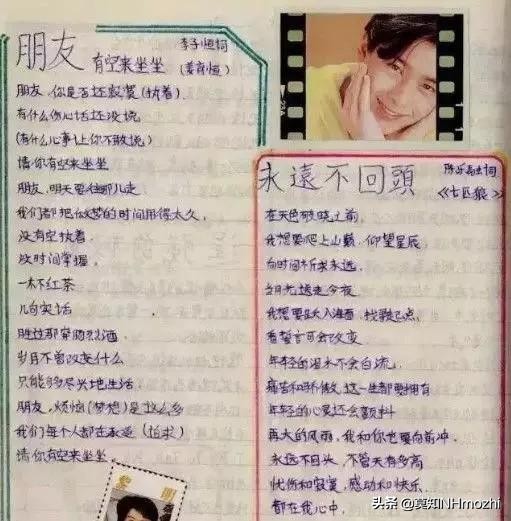 朋友
有空来坐坐
李子恒词
(姜育恒)
朋友，你是否还寂寞(执着)
有什么伤心话还没说
(有什么心事儿你不敢说)
请你有空来坐坐
朋友，明天要往哪儿走
我们都把做梦的时间用得太久，
没有空执着，
没时间掌握，
一杯红茶
几句实话
胜过那穿肠烈酒，
岁月不曾改变什么
只能够尽兴地生活
朋友，烦恼(梦想)是这么多
我们每个人都在承受(追求)
请你有空来坐坐。
永遠不回頭
陈乐融词
《七匹狼》
在天色破晓之前，
我想要爬上山巅，仰望星辰
向时间祈求永远，
当月光送走今夜
我想要跃入海面，找寻起点，
看誓言可会改变
年轻的泪水不会白流，
痛苦和骄傲，这一生都要拥有
年轻的心灵还会颤抖
再大的风雨，我和你也要向前冲，
永远不回头，不管天有多高
忧伤和寂寞，感动和快乐
都在我心中，
头条 @莫知NHmozhi